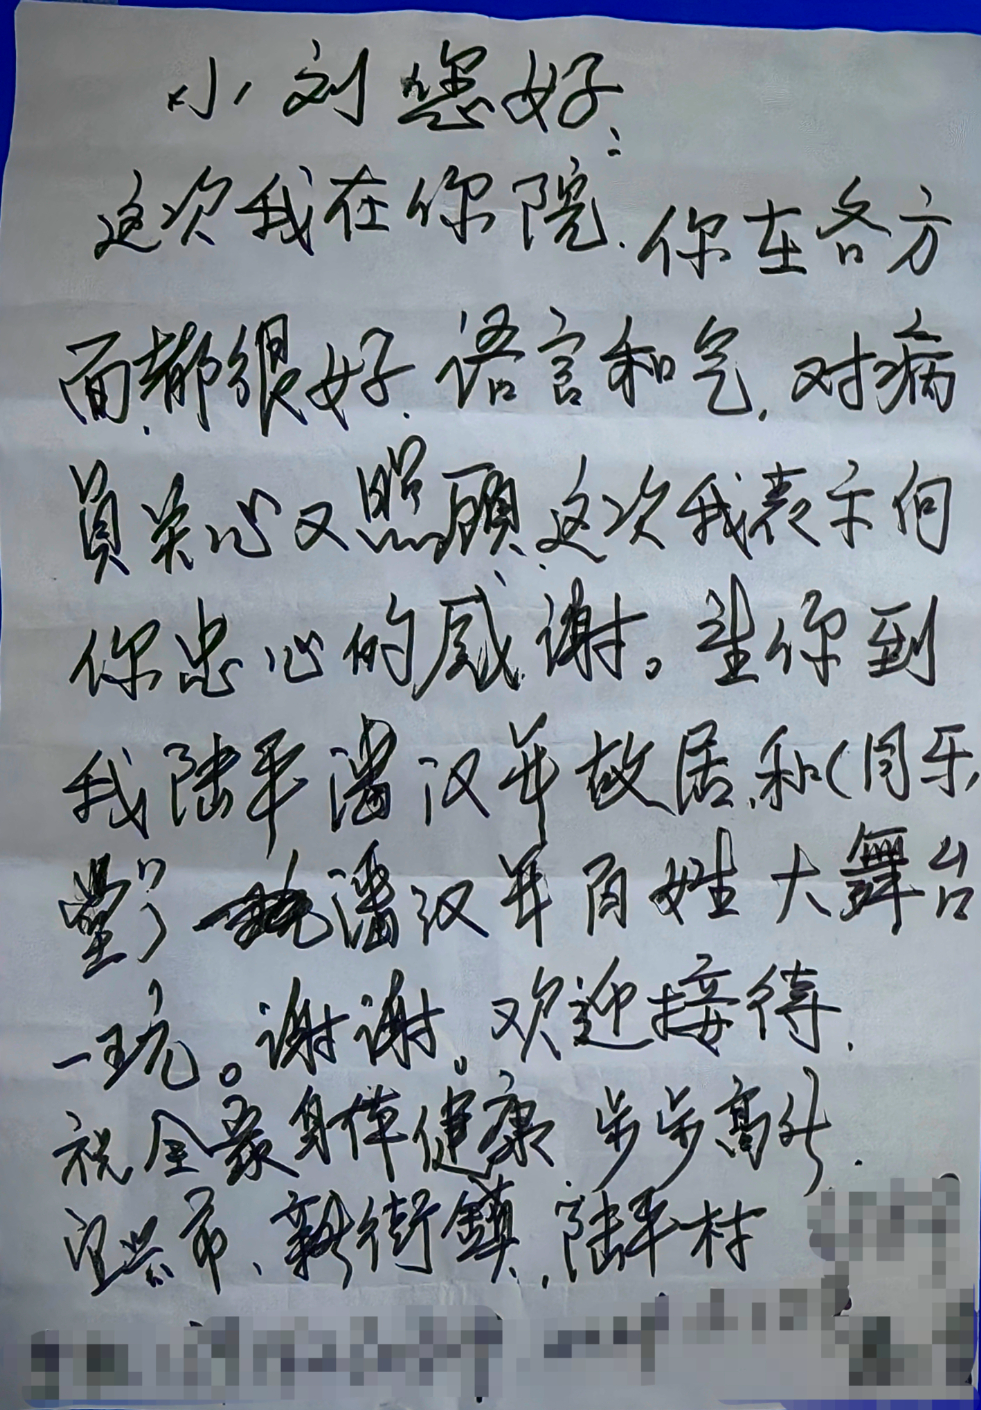 小刘您好:
这次我在你院.你在各方
面都很好.语言和气,对病
員关心又照顾.这次我表示向
你忠心的感谢。望你到
我陆平潘汉年故居.和(同乐
堂)潘汉年百姓大舞台
一玩。谢谢。欢迎接待.
祝全家身体健康步步高升.
宜兴市、新街鎮.陆平村